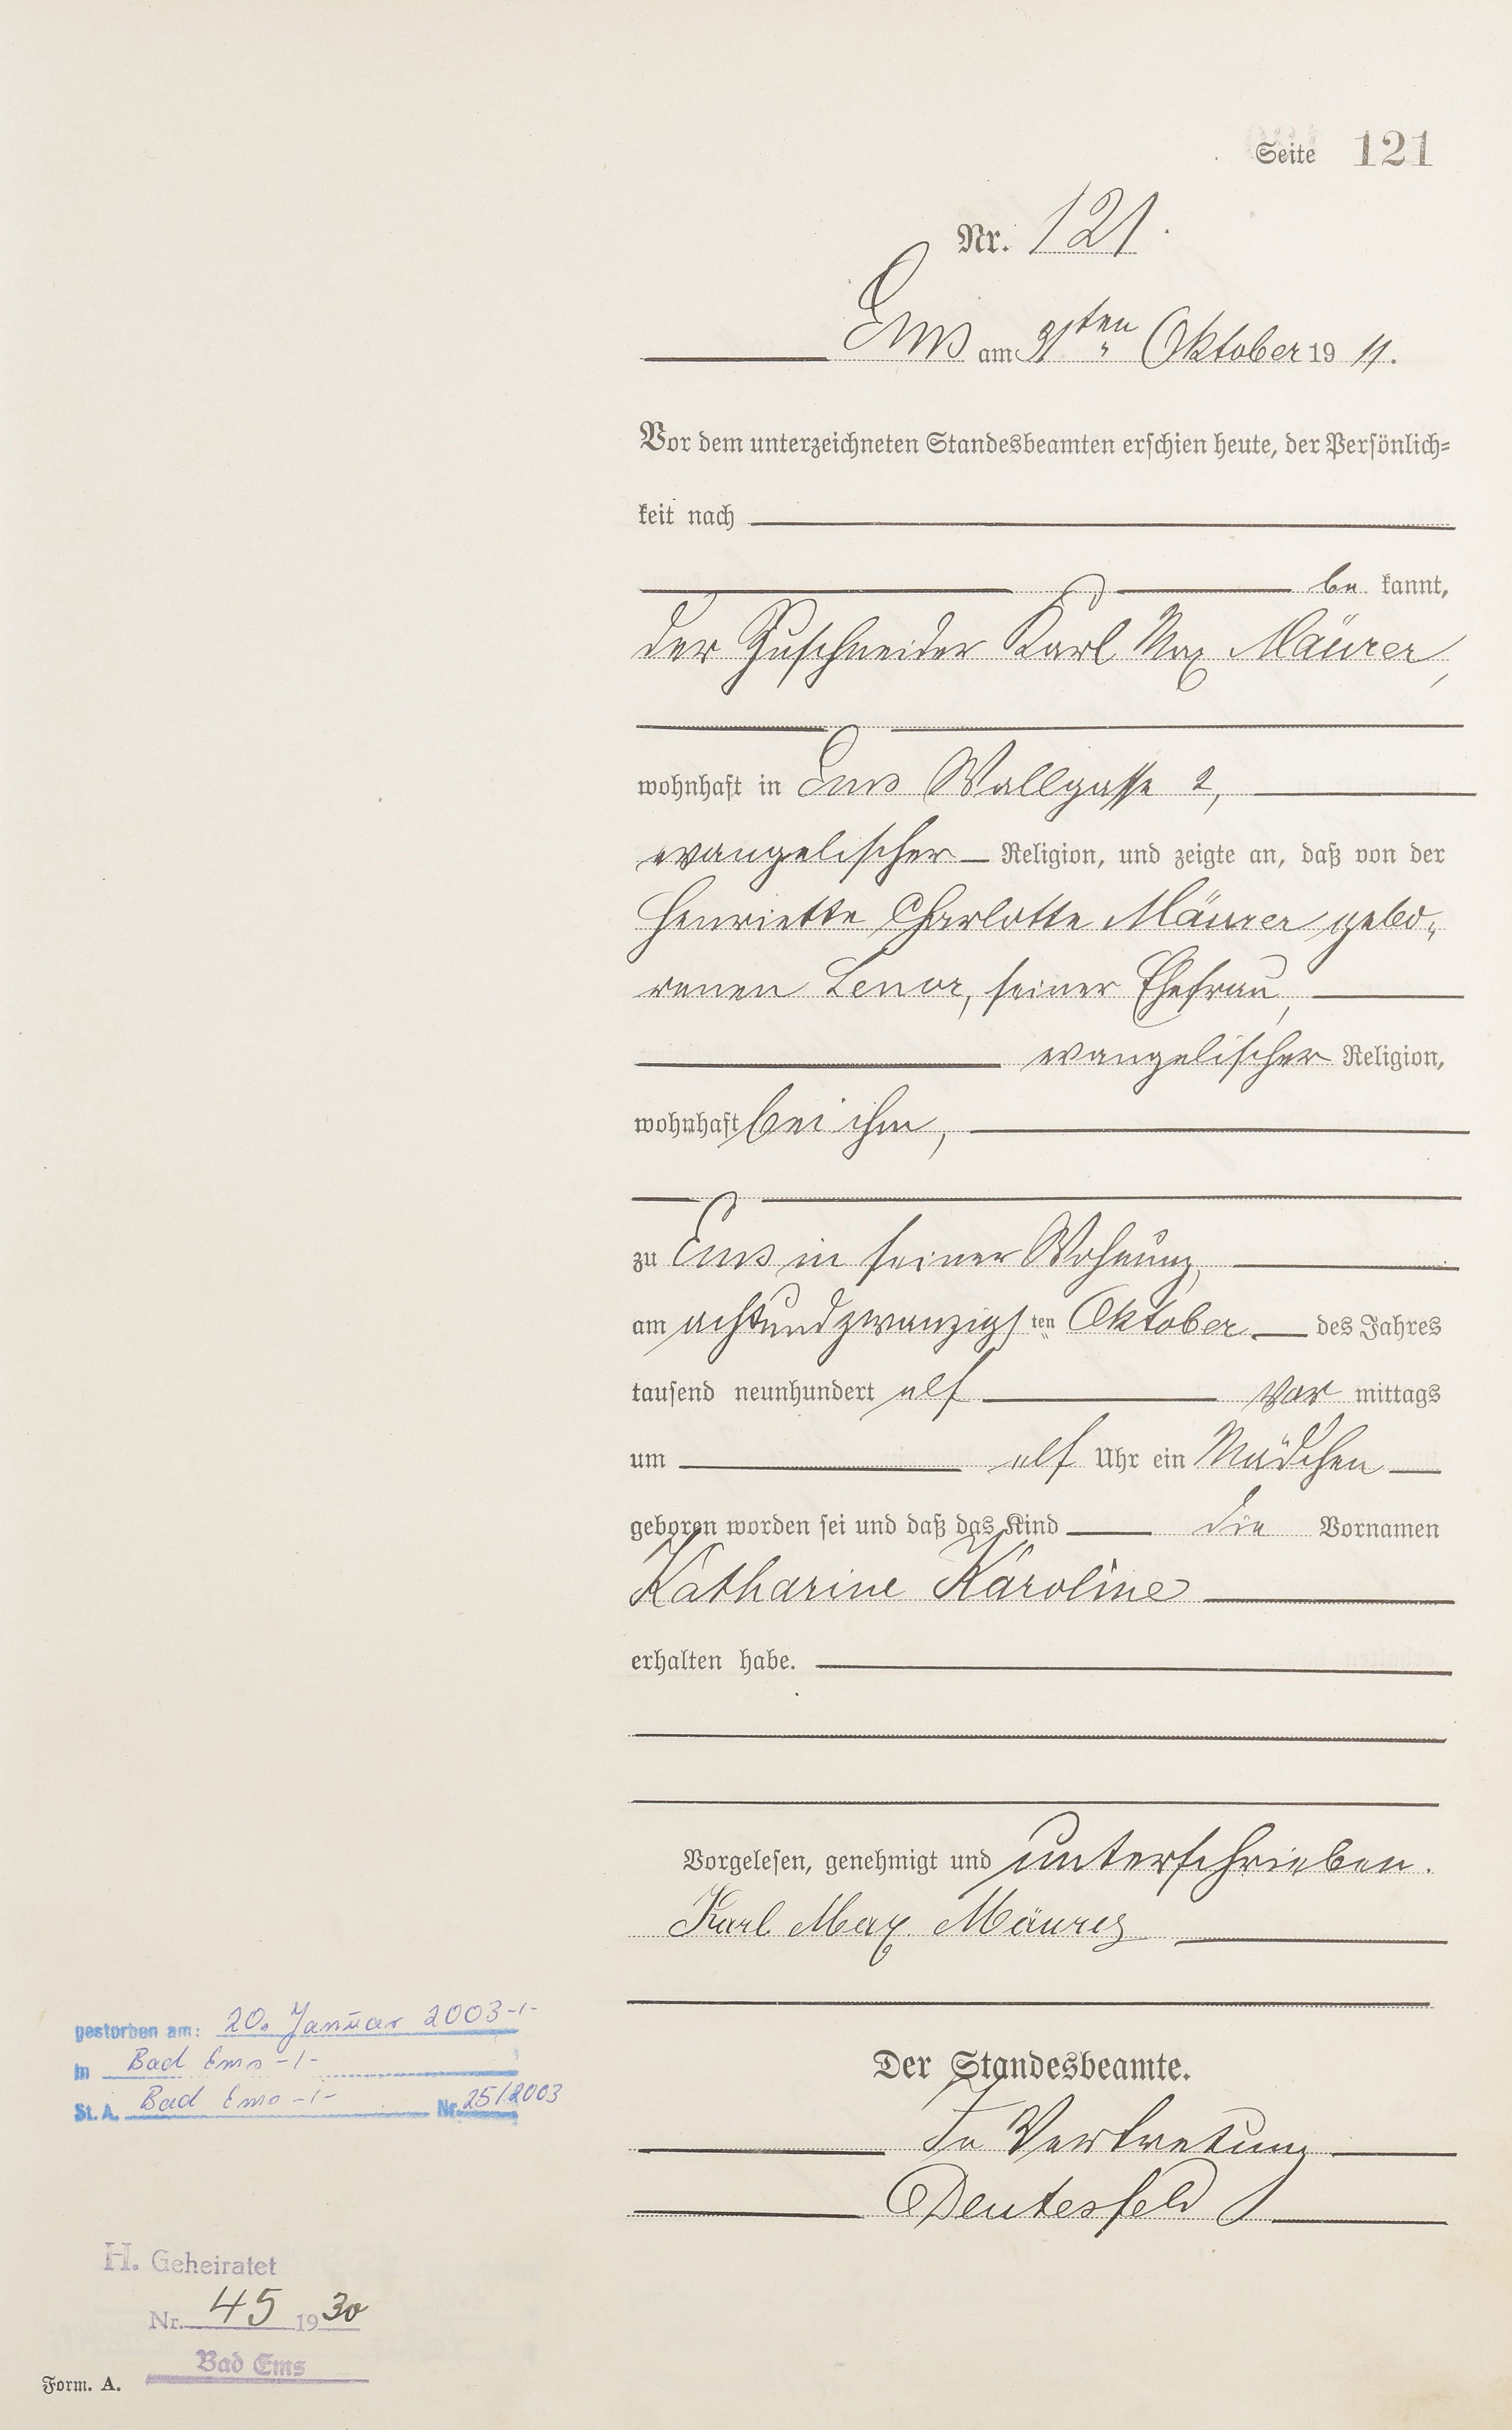 Seite 121
Nr. 121.
Ems am 31ten Oktober 19 11.
Vor dem unterzeichneten Standesbeamten erschien heute, der Persönlich=
keit nach
be kannt,
der Zuschneider Karl Max Mäurer,
wohnhaft in Ems Wallgasse 2,
evangelischer Religion, und zeigte an, daß von der
Henriette Charlotte Mäurer gebo-
renen Lenor, seiner Ehefrau,
evangelischer Religion,
wohnhaft bei ihm,
zu Ems in seiner Wohnung,
am achtundzwanzigsten Oktober des Jahres
tausend neunhundert elf vor mittags
um elf Uhr ein Mädchen
geboren worden sei und daß das Kind die Vornamen
Katharine Karoline
erhalten habe.
Vorgelesen, genehmigt und unterschrieben.
Karl Max. Mäurer
Der Standesbeamte.
In Vertretung
Deutesfeld
gestorben am: 20. Januar 2003-/-
in Bad Ems -/-
St. A. Bad Ems -/- Nr. 25/2003
H. Geheiratet
Nr. 45 1930
Bad Ems
Form. A.